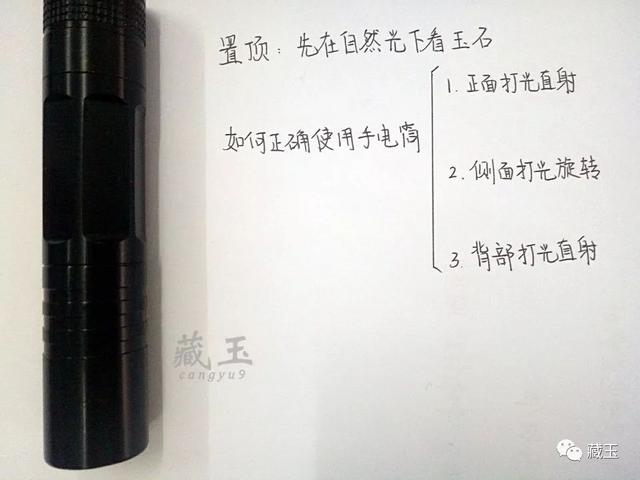 置顶：先在自然光下看玉石
如何正确使用手电筒
1. 正面打光直射
2. 侧面打光旋转
3. 背部打光直射
藏玉
cangyu9
藏玉